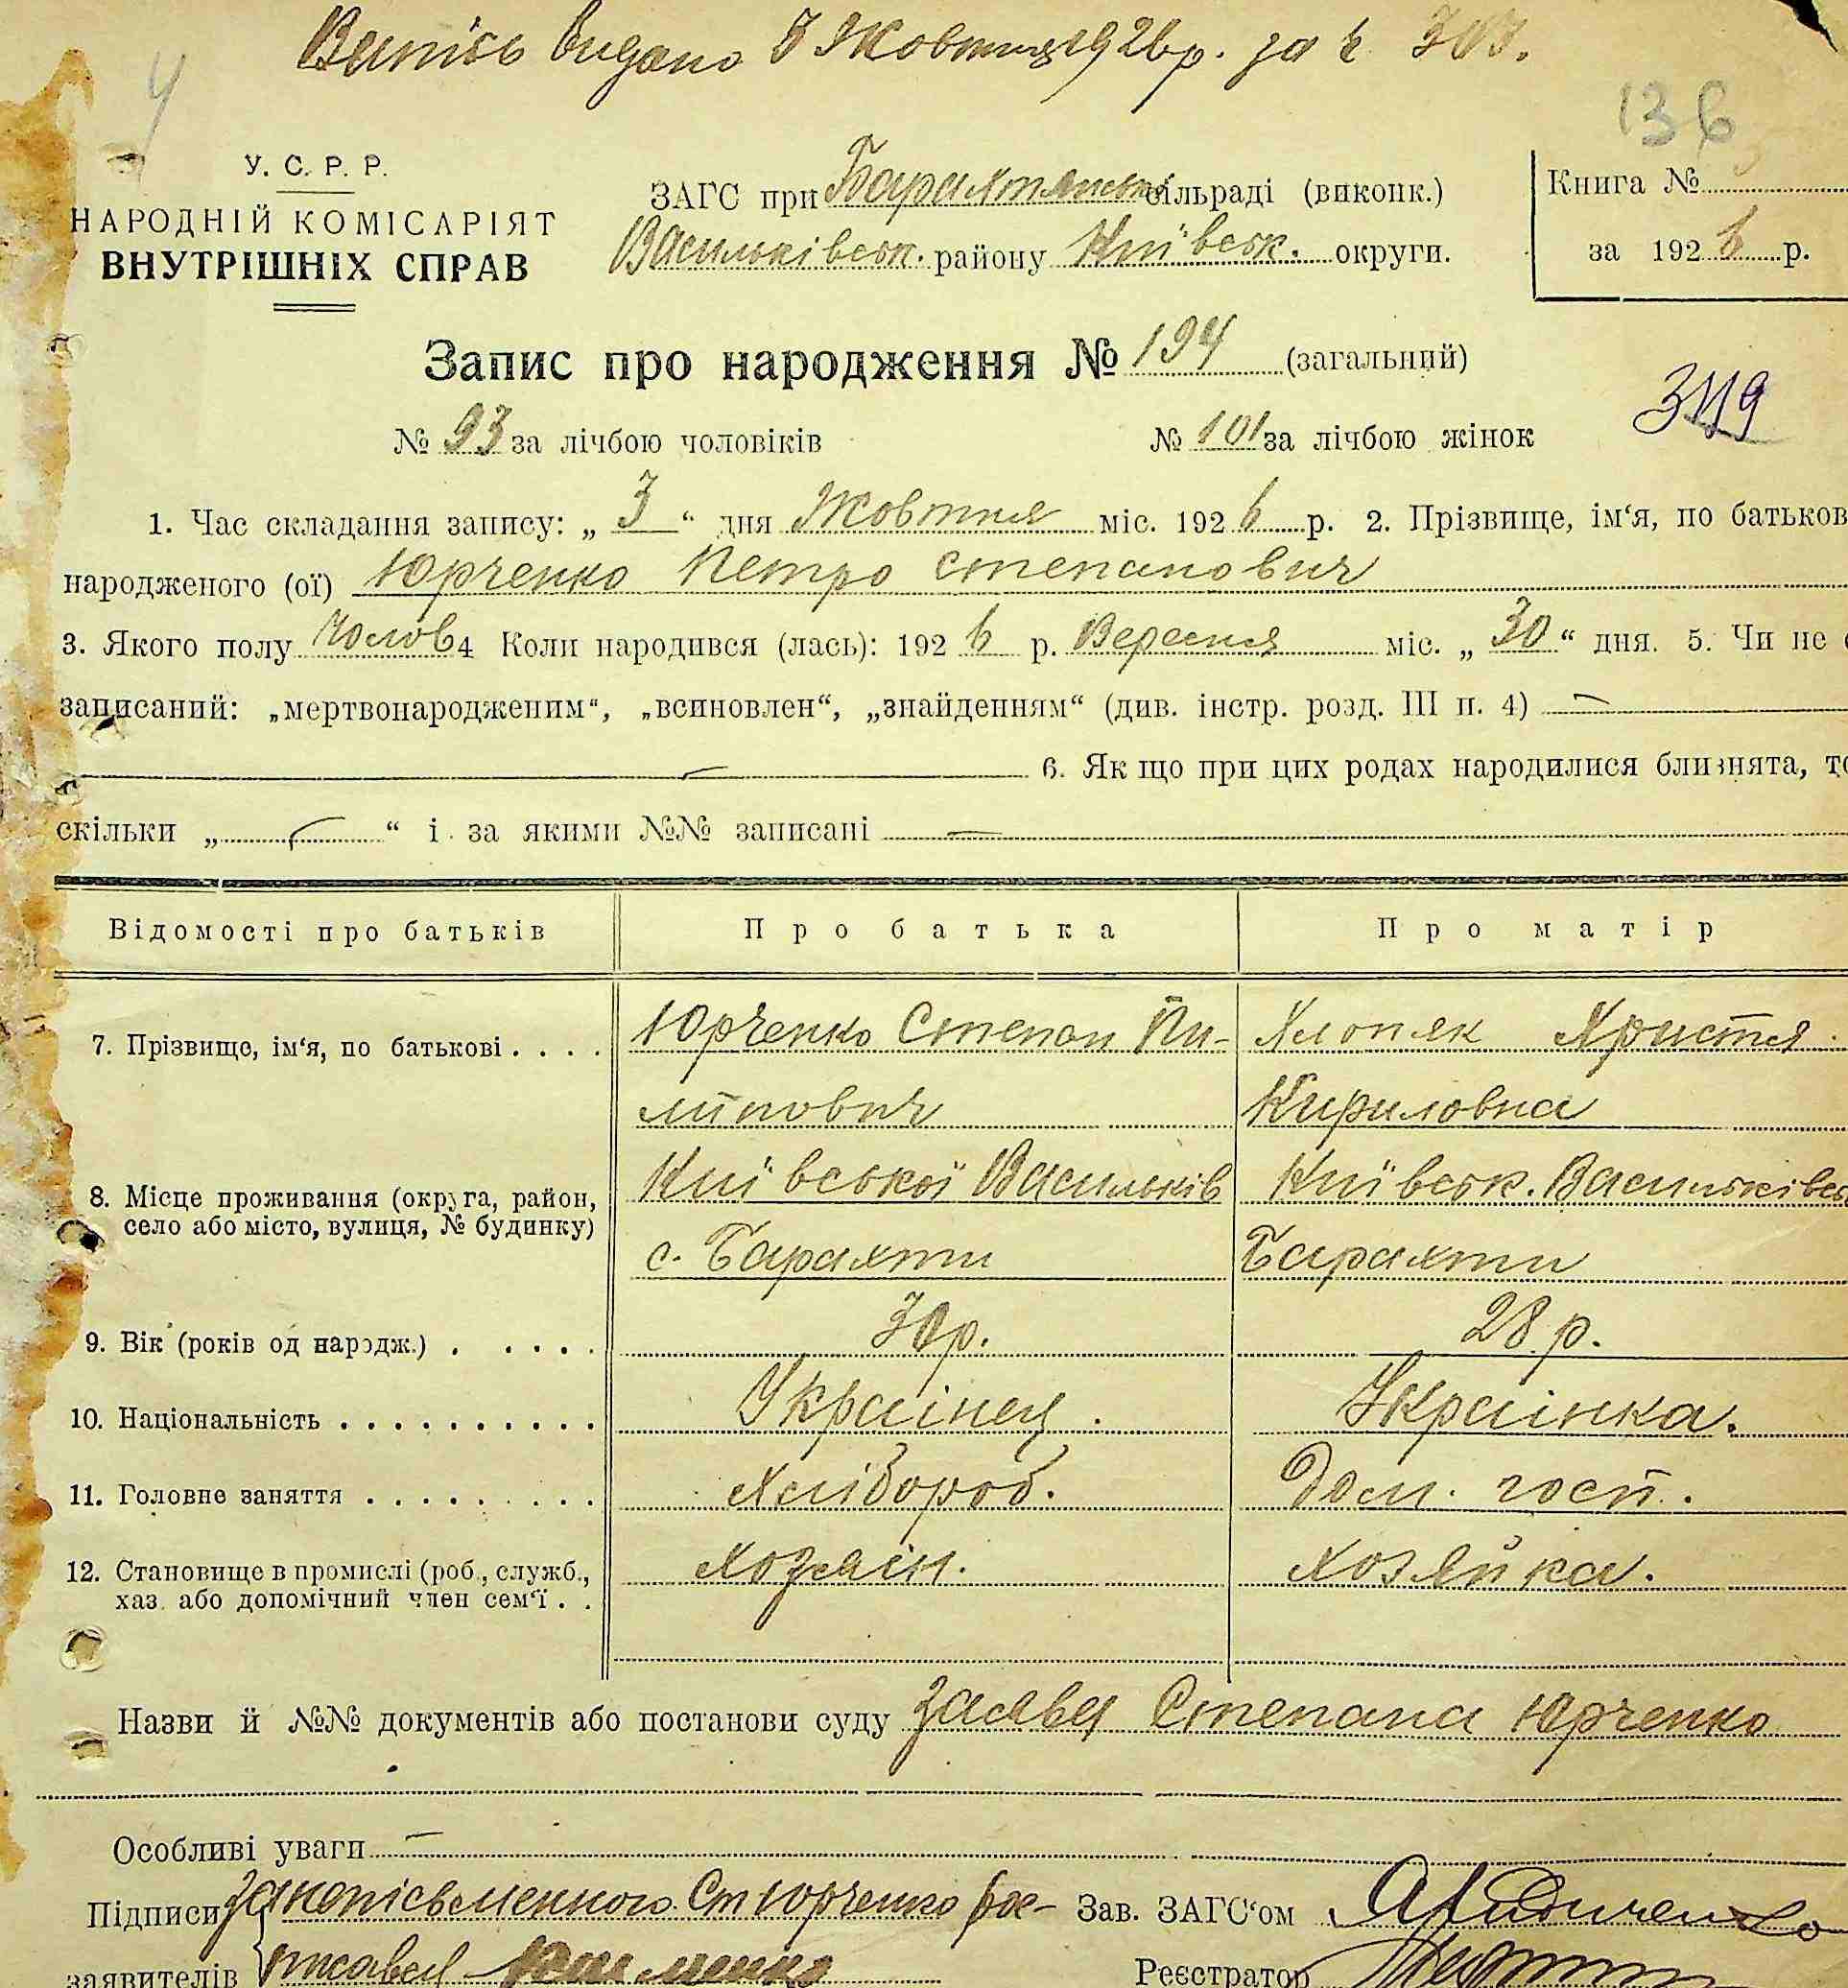 Випісь видано 3 Жовтня 1926 р. за №
4
136
У. С. Р. Р.
НАРОДНІЙ КОМІСАРІЯТ
ВНУТРІШНІХ СПРАВ
ЗАГС при Барахтянські сільраді (виконк.)
Васильківськ. району Київськ. округи.
Книга №
за 1926 р.
Запис про народження № 194 (загальний)
3119
№ 93 за лічбою чоловіків № 101 за лічбою жінок
1. Час складання запису: „ 3 “ дня Жовтня міс. 1926 р. 2. Прізвище, ім‘я, по батьков
народженого (ої) Юрченко Петро Степанович
3. Якого полу Чолов 4 Коли народився (лась): 1926 р. Вересня міс. „ 30 “ дня. 5. Чи не
записаний: „мертвонародженим“, „всиновлен“, „знайденням“ (див. інстр. розд. III п. 4) —
— 6. Як що при цих родах народилися близнята, то
скільки „ — “ і за якими №№ записані —
Відомості про батьків Про батька Про матір
7. Прізвище, ім‘я, по батькові . . . . Юрченко Степан Пи- Хлопяк Христя
липович Кириловна
8. Місце проживання (округа, район, Київської Васильків Київськ. Васильківськ
село або місто, вулиця, № будинку) с. Барахти Барахти
9. Вік (років од народж.) . . . . . 30 р. 28 р.
10. Національність . . . . . . . . . . Украінец . Украінка.
11. Головне заняття . . . . . . . . . Хлібороб. Дом. госп.
12. Становище в промислі (роб., служб., Хозяін. Хозяйка.
хаз. або допомічний член сем‘ї . .
Назви й №№ документів або постанови суду Заява Степана Юрченко
Особливі уваги —
Підписи За непісьменного Ст Юрченко рос- Зав. ЗАГС‘ом
заявителів писався Реєстратор